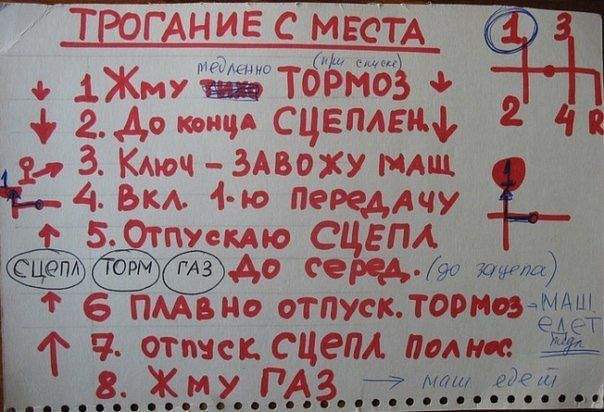 ТРОГАНИЕ С МЕСТА
1 3
2 4 R
медленно (при спуске)
1 Жму ТОРМОЗ
2. До конца СЦЕПЛЕН.
3. Ключ – ЗАВОЖУ МАШ
4. Вкл. 1-ю ПЕРЕДАЧУ
1
1
5. Отпускаю СЦЕПЛ
СЦЕПЛ ТОРМ ГАЗ До серед. (до зацепа)
6 ПЛАВНО ОТПУСК. ТОРМОЗ → МАШ.
едет
7. ОТПУСК. СЦЕПЛ ПОЛНОС.
8. Жму ГАЗ → маш едет